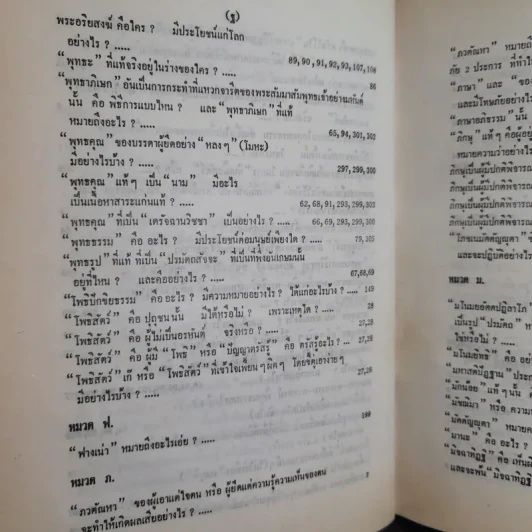 (ฐ)
พระอริยสงฆ์ คือใคร ? มีประโยชน์แก่โลก
อย่างไร ? ..... 89,90,91,92,93,107,108
“พุทธะ” ที่แท้จริงอยู่ในร่างของใคร ? ..... 86
“พุทธาภิเษก” อันเป็นการกระทำที่แหวกจารีตของพระสัมมาสัมพุทธเจ้าอย่างมหันต์
นั้น คือ พิธีการแบบไหน ? และ “พุทธาภิเษก” ที่แท้
หมายถึงอะไร ? ..... 65,94,301,302
“พุทธคุณ” ของบรรดาผู้ยึดอย่าง “หลงๆ” (โมหะ)
มีอย่างไรบ้าง ? ..... 297,299,300
“พุทธคุณ” แท้ๆ เป็น “นาม” มีอะไร
เป็นเนื้อหาสาระแก่นแท้ ? ..... 62,68,91,293,299,300
“พุทธคุณ” ที่เป็น “เดรัจฉานวิชชา” เป็นอย่างไร ? ..... 66,69,293,299,300
“พุทธธรรม” คือ อะไร ? มีประโยชน์ต่อมนุษย์เพียงใด ? ..... 79,305
“พุทธรูป” ที่แท้ ที่เป็น “ปรมัตถสัจจะ” ที่เป็นที่พึ่งอันเกษมนั้น
อยู่ที่ไหน ? และคืออย่างไร ? ..... 67,68,69
“โพธิปักขิยธรรม” คือ อะไร ? มีความหมายอย่างไร ? ได้แก่อะไรบ้าง ? .. 149
“โพธิสัตว์” คือ ปุถุชนนั้น มีได้หรือไม่ ? เพราะเหตุใด ? ..... 28
“โพธิสัตว์” คือ ผู้ไม่เป็นอรหันต์ จริงหรือ ? ..... 27,28
“โพธิสัตว์” คือ ผู้มี “โพธิ” หรือ “ปัญญาตรัสรู้” คือ ตรัสรู้อะไร ? ... 27,28
“โพธิสัตว์” เก๊ หรือ “โพธิสัตว์” ที่เข้าใจเพี้ยนๆผิดๆ โดยชี้ตัวง่ายๆ
มีอย่างไรบ้าง ? ..... 27,28
หมวด ฟ.
“ฟางเน่า” หมายถึงอะไรเอ่ย ? .....
หมวด ภ.
“ภวตัณหา” ของผู้เอาแต่ใจตน หรือ ผู้ยึดแต่ความรู้ความเห็นของตน
จะทำให้เกิดผลเสียอย่างไร ? .....
“ภวตัณหา” หมายถึง
ภัย 2 ประการ ที่ทำให้
“ภาษา” และ
และมีโทษภัยอย่างไร
“ภาษาอภิธรรม” นั้น
“ภิกษุ” แท้ๆ คือผู้อยู่
หมายความว่าอย่างไร
ภิกษุเป็นผู้มีปกติพิจารณา
ภิกษุเป็นผู้มีปกติพิจารณา
ภิกษุเป็นผู้มีปกติพิจารณ
และจะปฏิบัติอย่างไร
หมวด ม.
เป็นรูป “ปรมัตถ์”
ใช่หรือไม่ ?
“มโนมยอัตตา” คือ อย่า
มหาสติปัฏฐาน ประก
“มักน้อย” แท้ๆ นั้น
“มัชฌิมา” หรือ ความ
“มัตตัญญุตา” หมายค
“มานะ” คือ อะไร ?
“มิจฉาทิฏฐิ” คือ เห็นผ
และจะพ้น “มิจฉาทิฏฐิ